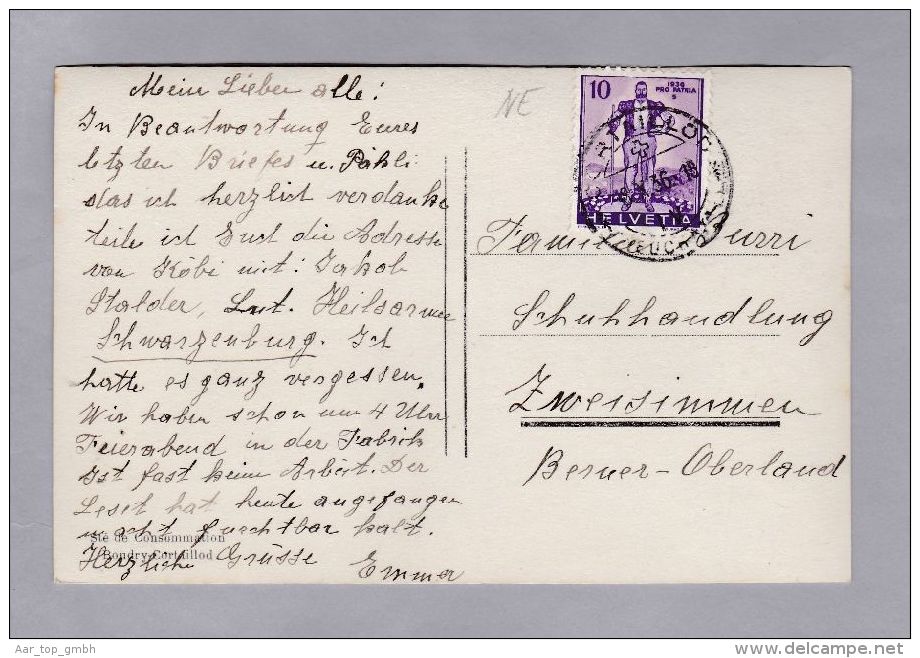 Mein Lieben alle!
In Beantwortung Eures
letzten Briefes u. Päkli
das ich herzlich verdanke
teile ich Euch die Adresse
von Köbi mit: Jakob
Stalder, Lnt. Heilsarmee
Schwarzenburg. Ich
hatte es ganz vergessen.
Wir haben schon um 4 Uhr
Feierabend in der Fabrik
ist fast keine Arbeit. Der
Leset hat heute angefangen
macht furchtbar kalt.
Herzliche Grüsse
Emma
Sté de Consommation
Boudry-Cortaillod
NE
10
1936
PRO PATRIA
HELVETIA
Familie
Schuhhandlung
Zweisimmen
Berner-Oberland
Aar_top_gmbh
delcampe.net